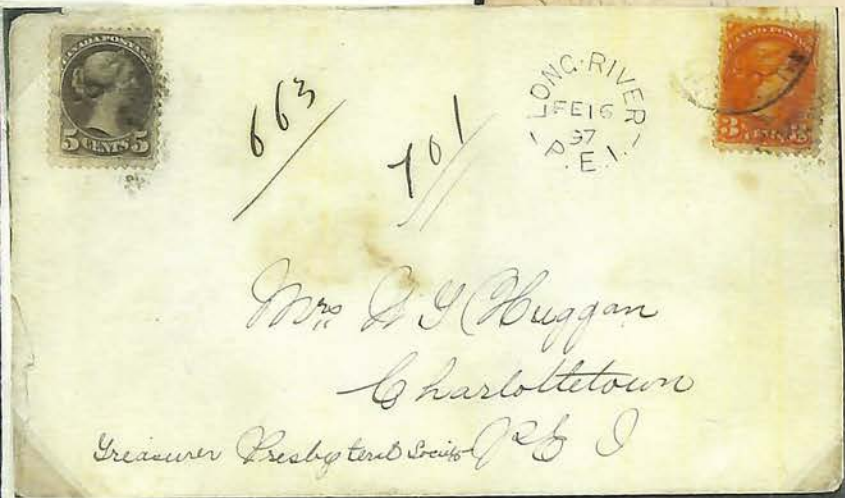 CANADA POSTAGE
5 CENTS 5
663
701
LONG-RIVER
FE 16
97
P.E.I.
CANADA POSTAGE
3 CENTS 3
Mrs Huggan
Charlottetown
P E I
Treasurer Presbyterial Society